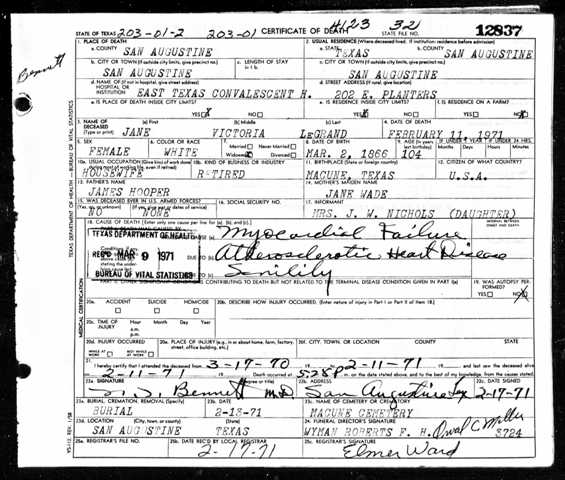 #123 32
STATE OF TEXAS 203-01-2 203-01 CERTIFICATE OF DEATH 12837
1. PLACE OF DEATH 2. USUAL RESIDENCE (Where deceased lived. If institution: residence before admission)
a. COUNTY SAN AUGUSTINE a. STATE TEXAS b. COUNTY SAN AUGUSTINE
b. CITY OR TOWN (If outside city limits, give precinct no.) c. LENGTH OF STAY in 1 b. c. CITY OR TOWN (If outside city limits, give precinct no.)
SAN AUGUSTINE SAN AUGUSTINE
d. NAME OF (If not in hospital, give street address) HOSPITAL OR INSTITUTION EAST TEXAS CONVALESCENT H. d. STREET ADDRESS (If rural, give location) 202 E. PLANTERS
e. IS PLACE OF DEATH INSIDE CITY LIMITS? YES X NO e. IS RESIDENCE INSIDE CITY LIMITS? YES X NO f. IS RESIDENCE ON A FARM? YES NO X
Bennett
3. NAME OF DECEASED (Type or print) (a) First JANE (b) Middle VICTORIA (c) Last LeGRAND 4. DATE OF DEATH FEBRUARY 11, 1971
5. SEX FEMALE 6. COLOR OR RACE WHITE 7. Married Never Married Widowed X Divorced 8. DATE OF BIRTH MAR. 2, 1866 9. AGE (In years last birthday) 104 IF UNDER 1 YEAR Months Days IF UNDER 24 HRS. Hours Minutes
10a. USUAL OCCUPATION (Give kind of work done during most of working life, even if retired) HOUSEWIFE 10b. KIND OF BUSINESS OR INDUSTRY RETIRED 11. BIRTHPLACE (State or foreign country) MACUNE, TEXAS 12. CITIZEN OF WHAT COUNTRY? U.S.A.
13. FATHER'S NAME JAMES HOOPER 14. MOTHER'S MAIDEN NAME JANE WADE
15. WAS DECEASED EVER IN U.S. ARMED FORCES? (Yes, no, or unknown) (If yes, give war or dates of service) NO NONE 16. SOCIAL SECURITY NO. 17. INFORMANT MRS. J. W. NICHOLS (DAUGHTER)
18. CAUSE OF DEATH (Enter only one cause per line for (a), (b), and (c).) INTERVAL BETWEEN ONSET AND DEATH
Myocardial Failure
TEXAS DEPARTMENT OF HEALTH
REC'D MAR 9 1971
BUREAU OF VITAL STATISTICS
Atherosclerotic Heart Disease
Senility
CONTRIBUTING TO DEATH BUT NOT RELATED TO THE TERMINAL DISEASE CONDITION GIVEN IN PART I(a) 19. WAS AUTOPSY PERFORMED? YES NO X
20a. ACCIDENT SUICIDE HOMICIDE 20b. DESCRIBE HOW INJURY OCCURRED. (Enter nature of injury in Part I or Part II of item 18.)
20c. TIME OF INJURY Hour Month Day Year a.m. p.m.
20d. INJURY OCCURRED WHILE AT WORK NOT WHILE AT WORK 20e. PLACE OF INJURY (e.g., in or about home, farm, factory, street, office building, etc.) 20f. CITY, TOWN, OR LOCATION COUNTY STATE
21. I hereby certify that I attended the deceased from 3-17-70 19 to 2-11-71 19 and last saw the deceased alive
on 2-11-71 19 Death occurred at 5:28p m. on the date stated above, and to the best of my knowledge, from the causes stated.
22a. SIGNATURE Bennett M.D. 22b. ADDRESS San Augustine Tex 22c. DATE SIGNED 2-17-71
23a. BURIAL, CREMATION, REMOVAL (Specify) BURIAL 23b. DATE 2-13-71 23c. NAME OF CEMETERY OR CREMATORY MACUNE CEMETERY
23d. LOCATION (City, town, or county) (State) SAN AUGUSTINE TEXAS 24. FUNERAL DIRECTOR'S SIGNATURE WYMAN ROBERTS F. H. Orval C. Miller 3724
25a. REGISTRAR'S FILE NO. 25b. DATE REC'D BY LOCAL REGISTRAR 2-17-71 25c. REGISTRAR'S SIGNATURE Elmer Ward
TEXAS DEPARTMENT OF HEALTH — BUREAU OF VITAL STATISTICS
MEDICAL CERTIFICATION